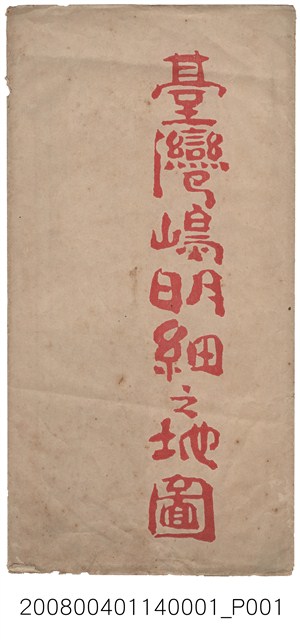 臺灣嶋明細之地圖
200800401140001_P001